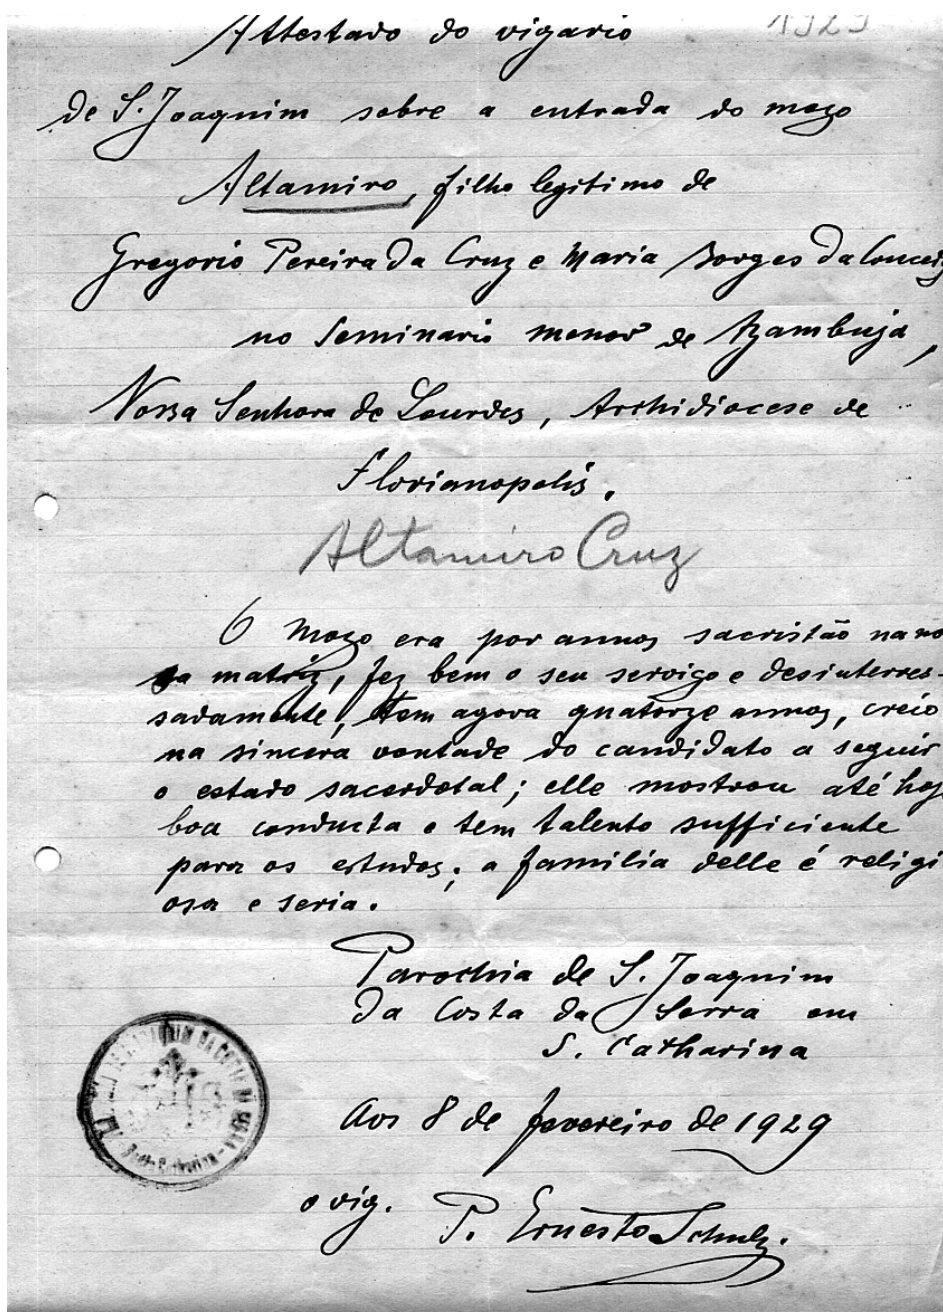 1929
Attestado do vigario
de S. Joaquim sobre a entrada do moço
Altamiro, filho legitimo de
Gregorio Pereira da Cruz e Maria Borges da Conceiç
no Seminario menor de Azambuja,
Nossa Senhora de Lourdes, Archidiocese de
Florianopolis.
Altamiro Cruz
O moço era por annos sacristão na no
sa matriz, fez bem o seu serviço e desinteres-
sadamente; tem agora quatorze annos, creio
na sincera vontade do candidato a seguir
o estado sacerdotal; elle mostrou até hoj
boa conducta e tem talento sufficiente
para os estudos; a familia delle é religi
osa e seria.
Parochia de S. Joaquim
da Costa da Serra em
S. Catharina
Aos 8 de fevereiro de 1929
o vig. P. Ernesto Schulz.
JOAQUIM DA COSTA DA SERRA
Catharina